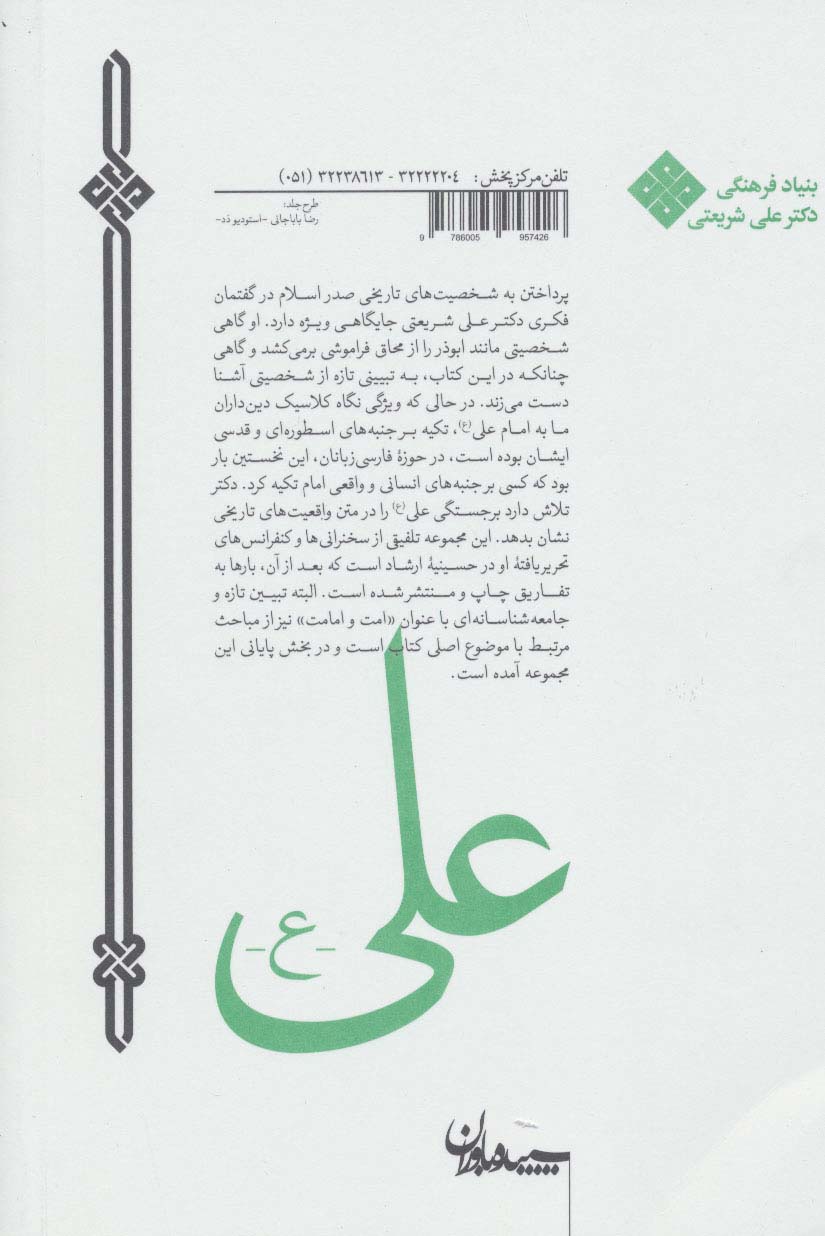 بنیاد فرهنگی
دکتر علی شریعتی
تلفن مرکز پخش: ۳۲۲۲۲۲۰۴ - ۳۲۲۳۸۶۱۳ (۰۵۱)
طرح جلد:
رضا باباجانی -استودیو دَد-
9 786005 957426
پرداختن به شخصیت‌های تاریخی صدر اسلام در گفتمان
فکری دکتر علی شریعتی جایگاهی ویژه دارد. او گاهی
شخصیتی مانند ابوذر را از محاق فراموشی برمی‌کشد و گاهی
چنانکه در این کتاب، به تبیینی تازه از شخصیتی آشنا
دست می‌زند. در حالی که ویژگی نگاه کلاسیک دین‌داران
ما به امام علی(ع)، تکیه بر جنبه‌های اسطوره‌ای و قدسی
ایشان بوده است، در حوزهٔ فارسی‌زبانان، این نخستین بار
بود که کسی بر جنبه‌های انسانی و واقعی امام تکیه کرد. دکتر
تلاش دارد برجستگی علی(ع) را در متن واقعیت‌های تاریخی
نشان بدهد. این مجموعه تلفیقی از سخنرانی‌ها و کنفرانس‌های
تحریریافتهٔ او در حسینیهٔ ارشاد است که بعد از آن، بارها به
تفاریق چاپ و منتشر شده است. البته تبیین تازه و
جامعه‌شناسانه‌ای با عنوان «امت و امامت» نیز از مباحث
مرتبط با موضوع اصلی کتاب است و در بخش پایانی این
مجموعه آمده است.
علی
-ع-
سپیده‌باوران